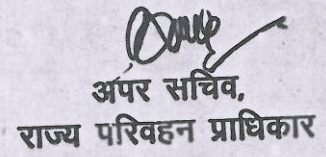 अपर सचिव,
राज्य परिवहन प्राधिकार